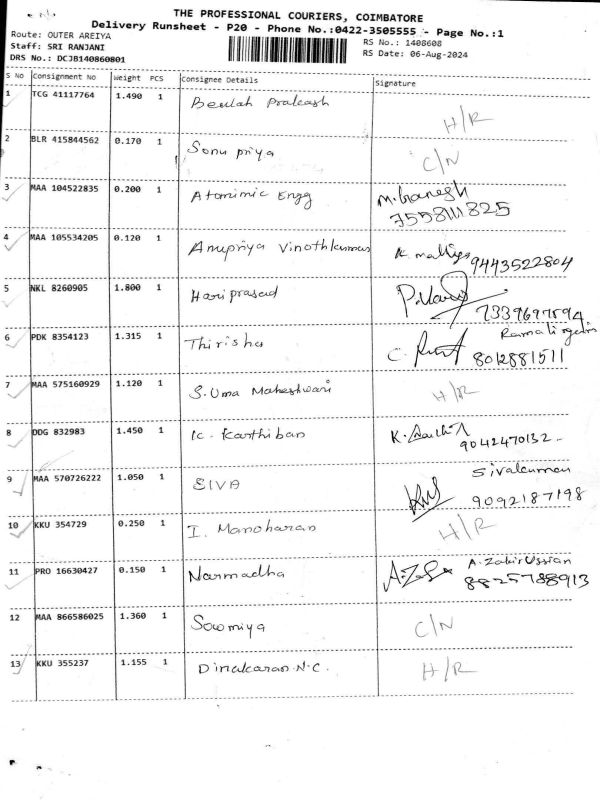 THE PROFESSIONAL COURIERS, COIMBATORE
Delivery Runsheet - P20 - Phone No.:0422-3505555 - Page No.:1
Route: OUTER AREIYA
RS No.: 1408608
Staff: SRI RANJANI
RS Date: 06-Aug-2024
DRS No.: DCJB140860801
S No Consignment No Weight PCS Consignee Details Signature
1 TCG 41117764 1.490 1 Beulah Prakash H/R
2 BLR 415844562 0.170 1 Sonu priya C/N
3 MAA 104522835 0.200 1 Atomimic Engg M.Ganesh
7558111825
4 MAA 105534205 0.120 1 Anupriya Vinothkumar K. 9443522804
5 NKL 8260905 1.800 1 Hariprasad 7339697594
6 PDK 8354123 1.315 1 Thirisha C. 8012881511
7 MAA 575160929 1.120 1 S. Uma Maheshwari H/R
8 DDG 832983 1.450 1 K. Karthiban K.
9042470132
9 MAA 570726222 1.050 1 SIVA Sivakumar
9092187198
10 KKU 354729 0.250 1 I. Manoharan H/R
11 PRO 16630427 0.150 1 Narmadha A. Zakir Ussian
8825788913
12 MAA 866586025 1.360 1 Sowmiya C/N
13 KKU 355237 1.155 1 Dinakaran.N.C. H/R